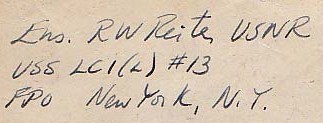 Ens. RW Reiter USNR
USS LCI(L) #13
FPO New York, N.Y.